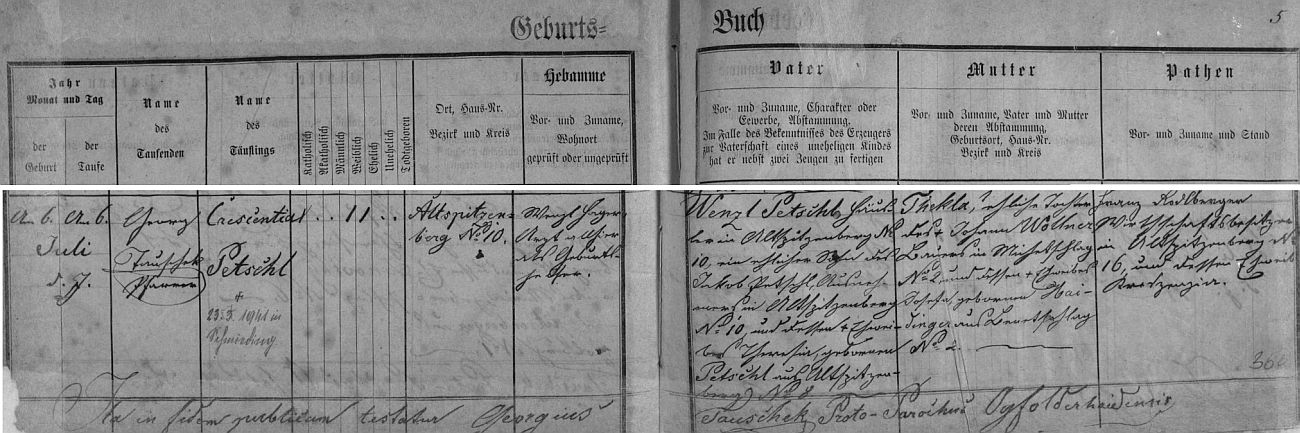 Geburts=
Buch
5
Jahr
Monat und Tag
der Geburt
der Taufe
Name
des
Taufenden
Name
des
Täuflings
Katholisch
Akatholisch
Männlich
Weiblich
Ehelich
Unehelich
Todtgeboren
Ort, Haus-Nr.
Bezirk und Kreis
Hebamme
Vor- und Zuname,
Wohnort
geprüft oder ungeprüft
Vater
Vor- und Zuname, Charakter oder
Gewerbe, Abstammung.
Im Falle des Bekenntnisses des Erzeugers
zur Vaterschaft eines uneheligen Kindes
hat er nebst zwei Zeugen zu fertigen
Mutter
Vor- und Zuname, Vater und Mutter
deren Abstammung,
Geburtsort, Haus-Nr.
Bezirk und Kreis
Pathen
Vor- und Zuname und Stand
A. 6.
Juli
d. J.
A. 6.
Georg
Tauschek
Pfarrer
Crescentia
Petschl
+
23. 5. 1941 in
Schmieding
. . 1 1 . .
Altspitzen-
berg No. 10.
Wenzl
Arzt
als Geburts-
helfer.
Wenzl Petschl, Häus-
ler in Altspitzenberg No
10, ein ehlicher Sohn des
Jakob Petschl, Ausneh-
mers in Altspitzenberg
No. 10, und dessen + Ehwei-
bes Theresia, gebornen
Petschl aus Altspitzen-
berg No. 8
Thekla, ehliche Tochter
des + Johann Wöllner
Bauers in Michetschlag
No. 2. und dessen + Ehweibes
Josefa, gebornen Hai-
dinger aus Benetschlag
No. 2.
Franz Rodlberger
Wirtschaftsbesitzer
in Altspitzenberg No
16, und dessen Ehweib
Kreszenzia.
Ita in fidem publicam testatur Georgius
Tauschek Proto-Parochus Ogfolderhaidensis